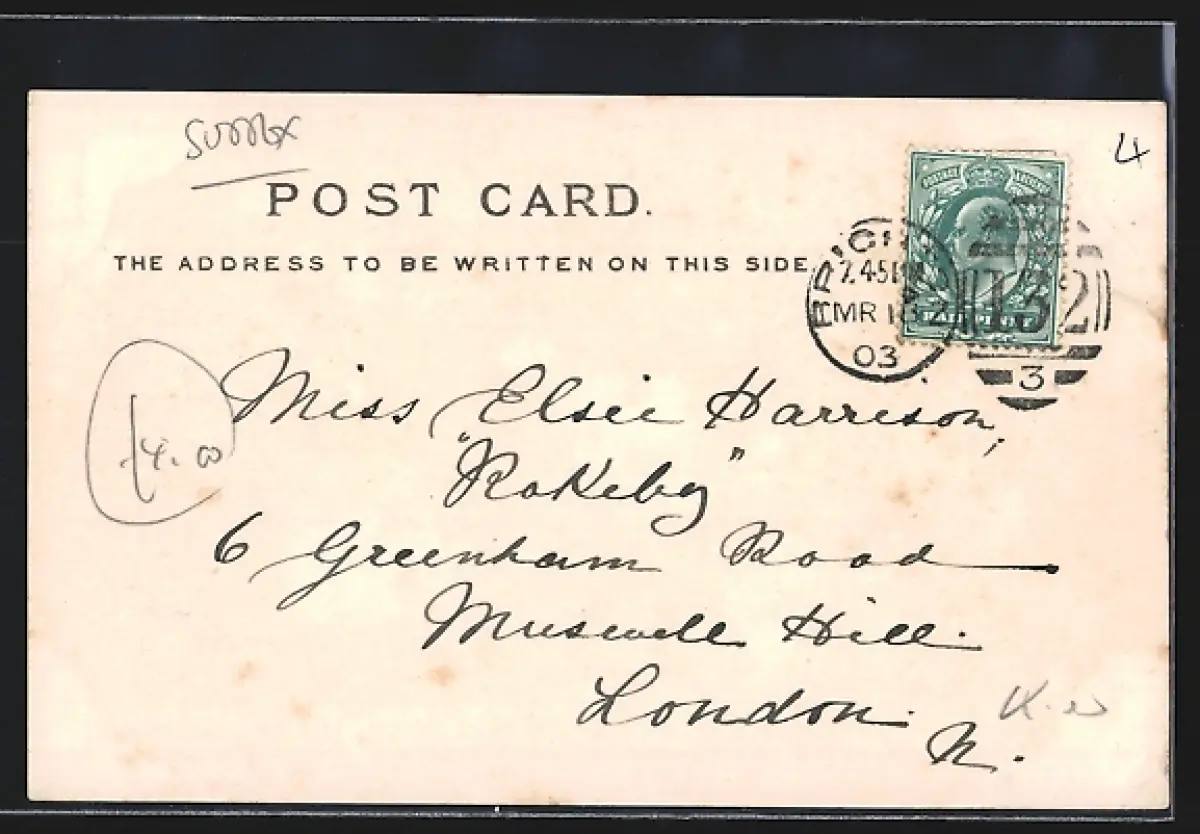 Sussex
POST CARD.
THE ADDRESS TO BE WRITTEN ON THIS SIDE.
4
MR 18
03
132
3
Miss Elsie Harrison,
"Rokeby"
6 Greenham Road
Muswell Hill.
London.
N.